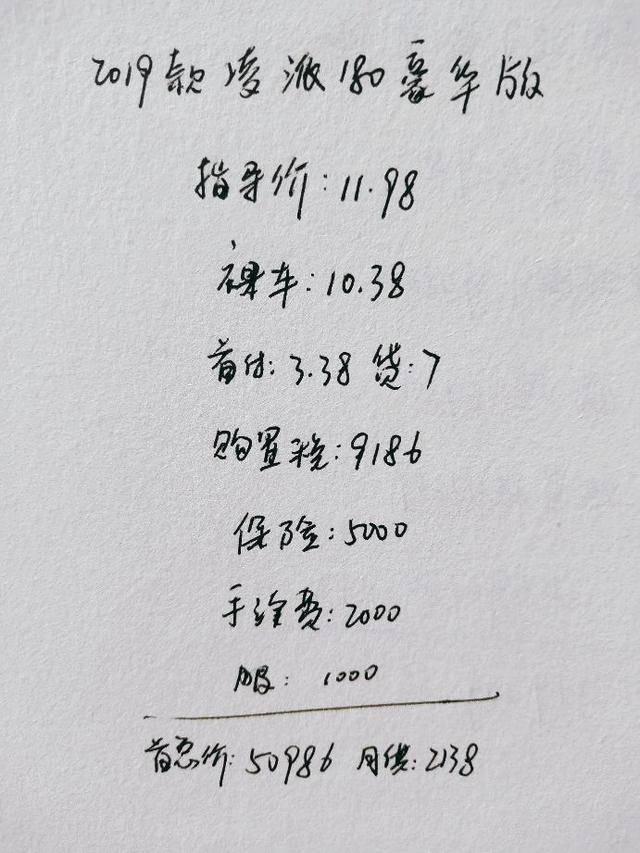 2019款凌派180豪华版
指导价:11.98
裸车:10.38
首付:3.38 贷:7
购置税:9186
保险:5000
手续费:2000
服: 1000
首总价:50986 月供:2138